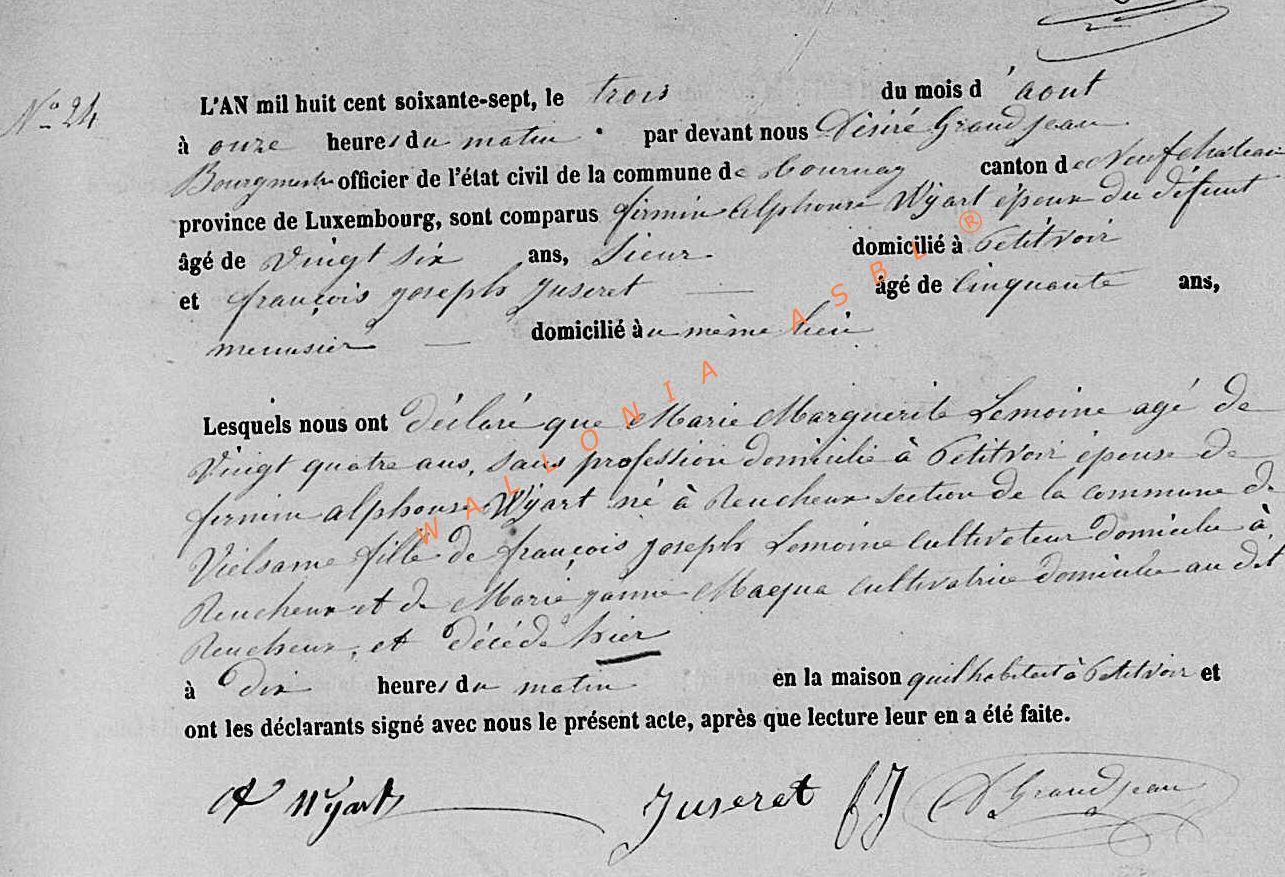 N° 24
L'AN mil huit cent soixante-sept, le trois du mois d'aout
à onze heures du matin par devant nous Désiré Grandjean
Bourgmestre officier de l'état civil de la commune de Tournay canton de Neufchateau
province de Luxembourg, sont comparus firmin alphonse Wÿart époux du défunt
âgé de Vingt six ans, Sieur domicilié à Petitvoir
et françois joseph Juseret âgé de Cinquante ans,
menuisier domicilié au même lieu
Lesquels nous ont déclaré que Marie Marguerite Lemoine agé de
Vingt quatre ans, sans profession domicilié à Petitvoir épouse de
firmin alphonse Wÿart né à Rencheux section de la commune de
Vielsame fille de françois joseph Lemoine cultivateur domicilié à
Rencheux et de Marie janne Maqua cultivatrice domicilié au dit
Rencheux, et décédé hier
à Dix heures du matin en la maison quil habitait à Petitvoir et
ont les déclarants signé avec nous le présent acte, après que lecture leur en a été faite.
A Wÿart Juseret fJ D Grandjean
WALLONIA ASBL ®